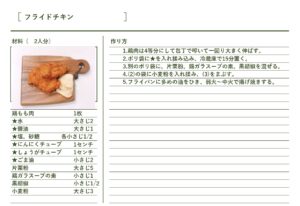 フライドチキン
材料（　2人分）
鶏もも肉　1枚
★水　大さじ1
★醤油　大さじ1
★塩、砂糖　各小さじ1/2
★にんにくチューブ　1センチ
★しょうがチューブ　1センチ
★ごま油　小さじ2
片栗粉　大さじ5
鶏ガラスープの素　小さじ1
黒胡椒　小さじ1/2
小麦粉　大さじ3
作り方
1.鶏肉は4等分にして包丁で叩いて一回り大きく伸ばす。
2.ポリ袋に★を入れ揉み込み、冷蔵庫で15分置く。
3.別のポリ袋に、片栗粉、鶏ガラスープの素、黒胡椒を混ぜる。
4.(2)の袋に小麦粉を入れ揉み、(3)をまぶす。
5.フライパンに多めの油をひき、弱火〜中火で揚げ焼きする。